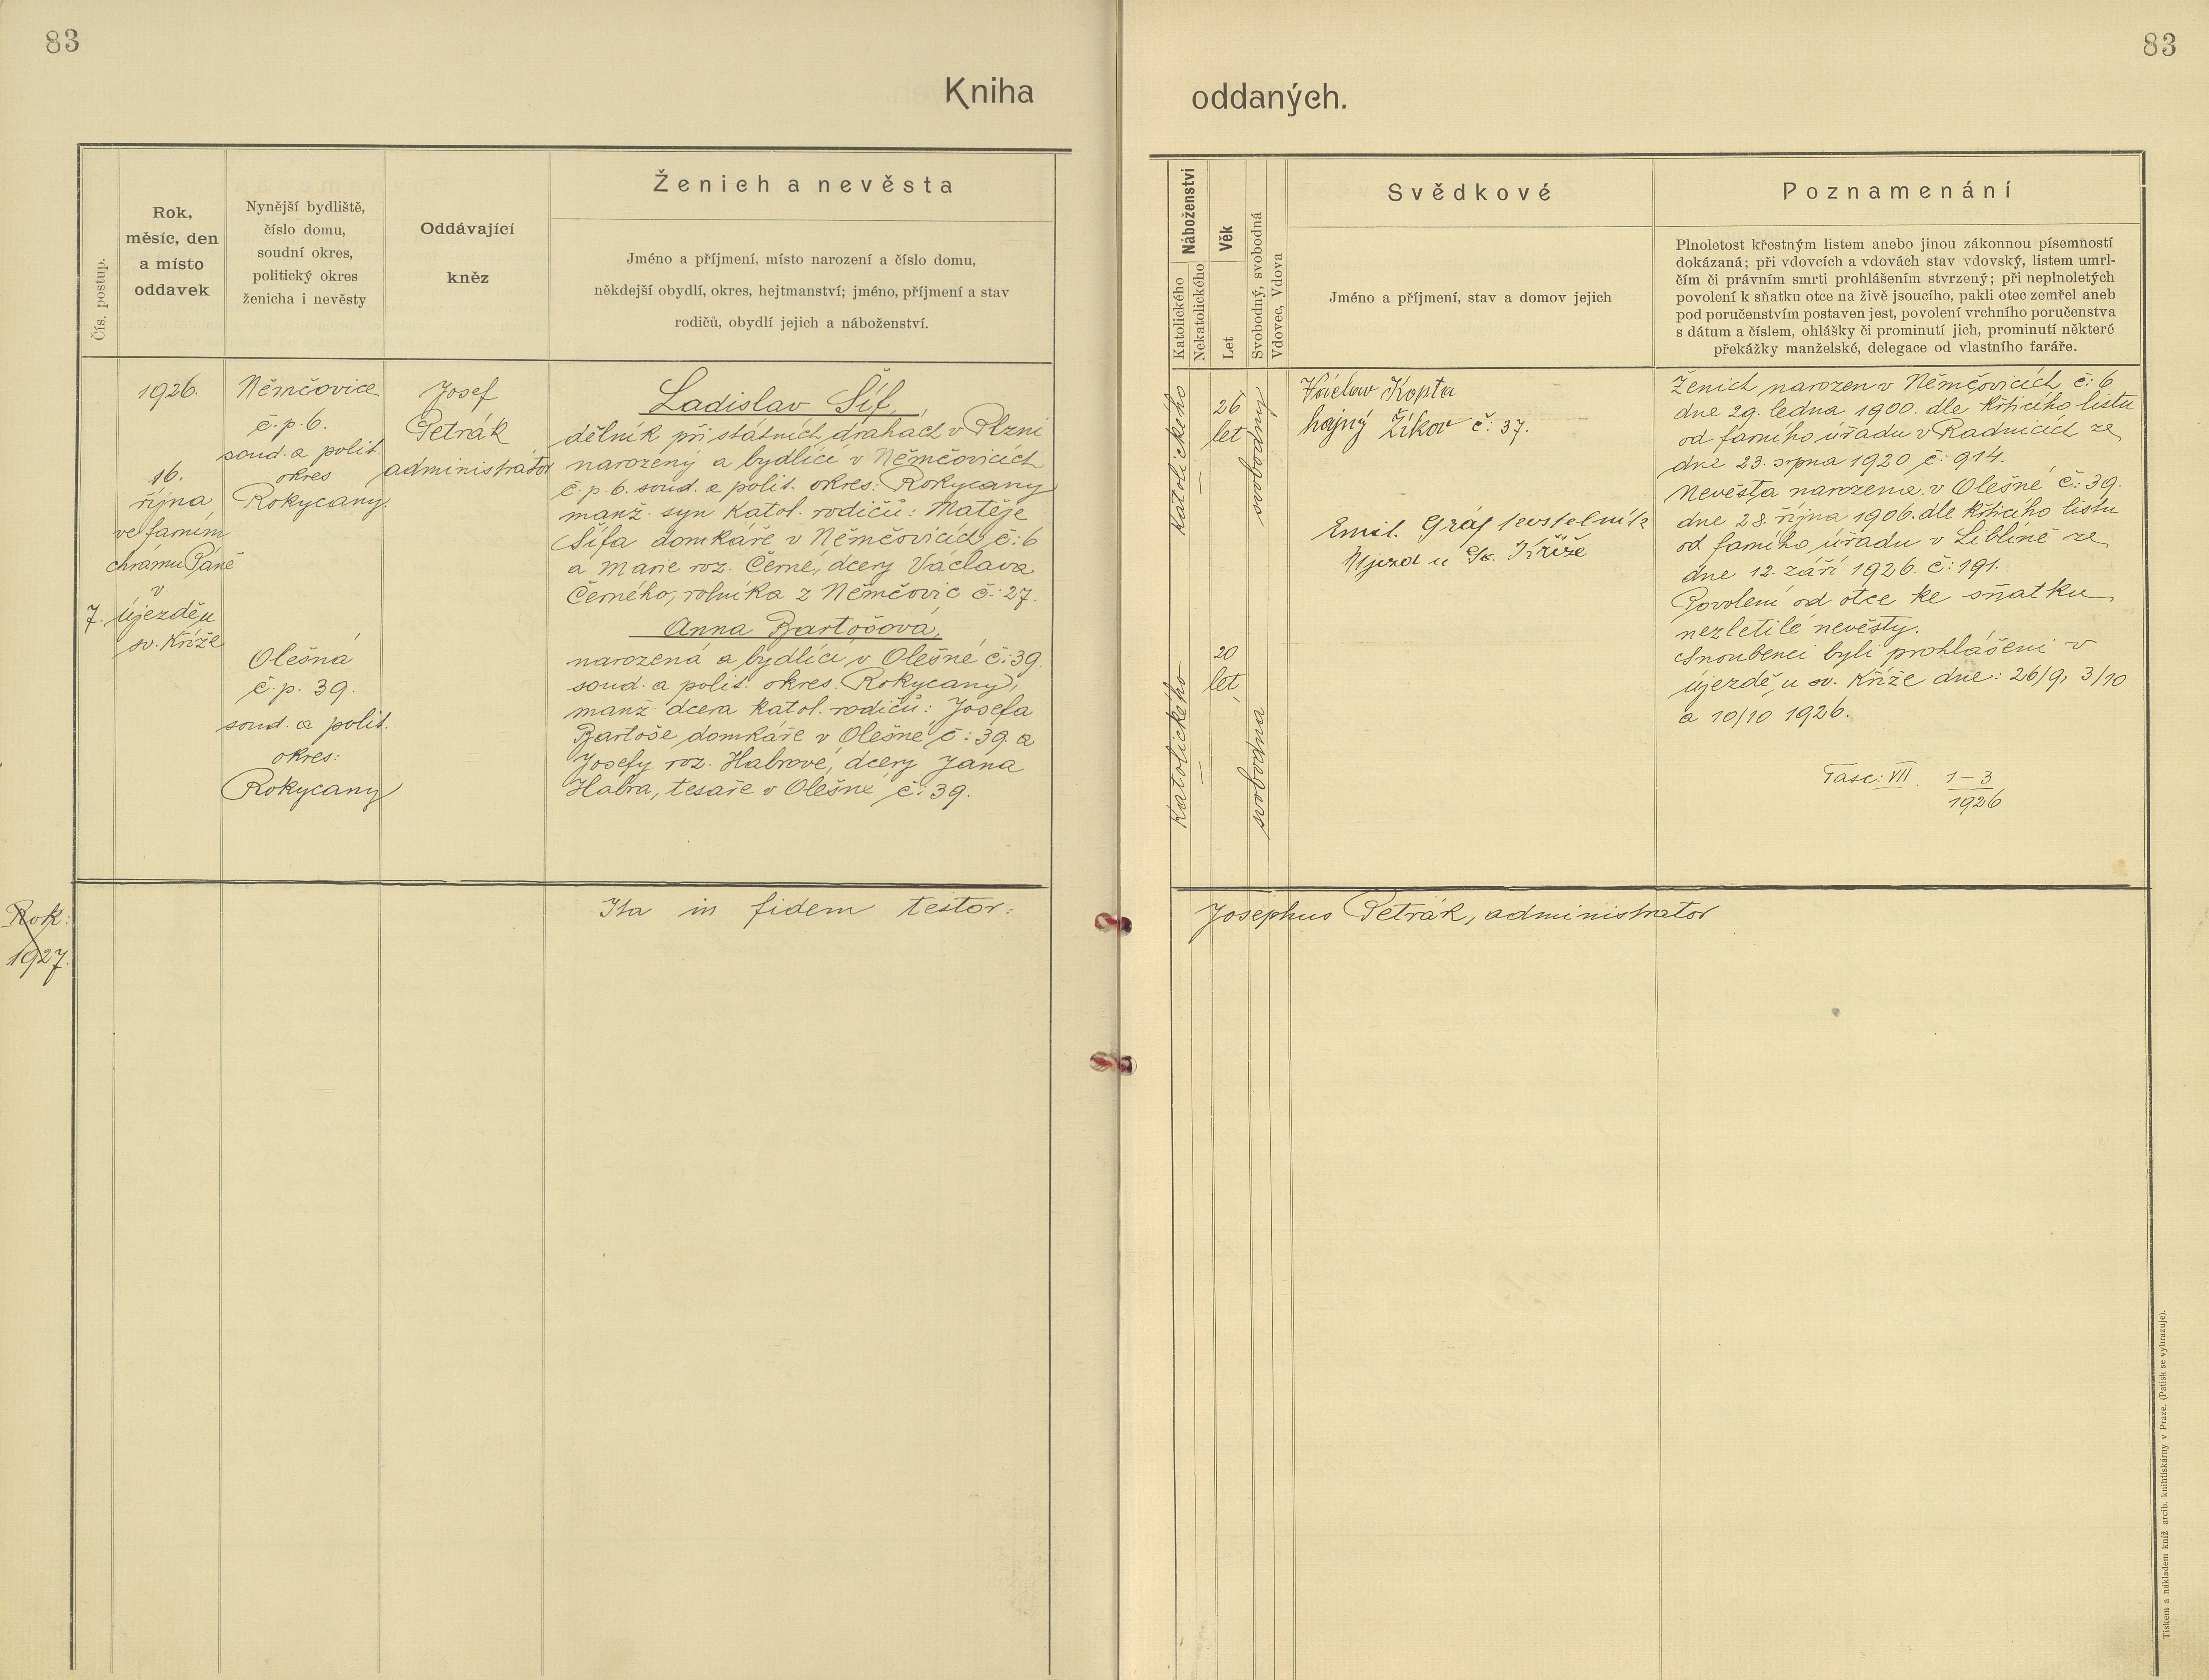 83
83
Kniha
oddaných.
Čís. postup.
Rok,
měsíc, den
a místo
oddavek
Nynější bydliště,
číslo domu,
soudní okres,
politický okres
ženicha i nevěsty
Oddávající
kněz
Ženich a nevěsta
Jméno a příjmení, místo narození a číslo domu,
někdejší obydlí, okres, hejtmanství; jméno, příjmení a stav
rodičů, obydlí jejich a náboženství.
Náboženství
Katolického
Nekatolického
Věk
Let
Svobodný, svobodná
Vdovec, Vdova
Svědkové
Jméno a příjmení, stav a domov jejich
Poznamenání
Plnoletost křestným listem anebo jinou zákonnou písemností
dokázaná; při vdovcích a vdovách stav vdovský, listem umrl-
čím či právním smrti prohlášením stvrzený; při neplnoletých
povolení k sňatku otce na živě jsoucího, pakli otec zemřel aneb
pod poručenstvím postaven jest, povolení vrchního poručenstva
s dátum a číslem, ohlášky či prominutí jich, prominutí některé
překážky manželské, delegace od vlastního faráře.
7.
1926.
16.
října
ve farním
chrámu Páně
v
Újezdě u
sv. Kříže
Němčovice
č. p. 6.
soud. a polit.
okres
Rokycany.
Olešná
č. p. 39.
soud. a polit.
okres:
Rokycany
Josef
Petrák
administrátor
Ladislav Šíf,
dělník při státních drahách v Plzni
narozený a bydlící v Němčovicích
č. p. 6. soud. a polit. okres: Rokycany
manž. syn katol. rodičů: Matěje
Šífa domkáře v Němčovicích č: 6
a Marie roz. Černé, dcery Václava
Černého, rolníka z Němčovic č: 27.
Anna Bartošová,
narozená a bydlící v Olešné č: 39.
soud. a polit. okres. Rokycany,
manž dcera katol. rodičů: Josefa
Bartoše domkáře v Olešné č: 39. a
Josefy roz. Habrové, dcery Jana
Habra, tesaře v Olešné č: 39.
katolického
katolického
26
let
20
let
svobodný
svobodna
Václav Kopta
hajný Žíkov č: 37.
Emil. Gráf
Újezd u Sv. Kříže
Ženich narozen v Němčovicích č: 6
dne 29. ledna 1900. dle křticího listu
od farního úřadu v Radnicích ze
dne 23. srpna 1920 č: 914.
Nevěsta narozena v Olešné č: 39.
dne 28. října 1906. dle křticího listu
od farního úřadu v Liblíně ze
dne 12. září 1926. č: 191.
Povolení od otce ke sňatku
nezletilé nevěsty.
Snoubenci byli prohlášeni v
Újezdě u sv. Kříže dne: 26/9, 3/10
a 10/10 1926.
Fasc: VII. 1-3
1926
Rok:
1927.
Ita in fidem testor:
Josephus Petrák, administrator
Tiskem a nákladem kníž. arcib. knihtiskárny v Praze. (Patisk se vyhrazuje).